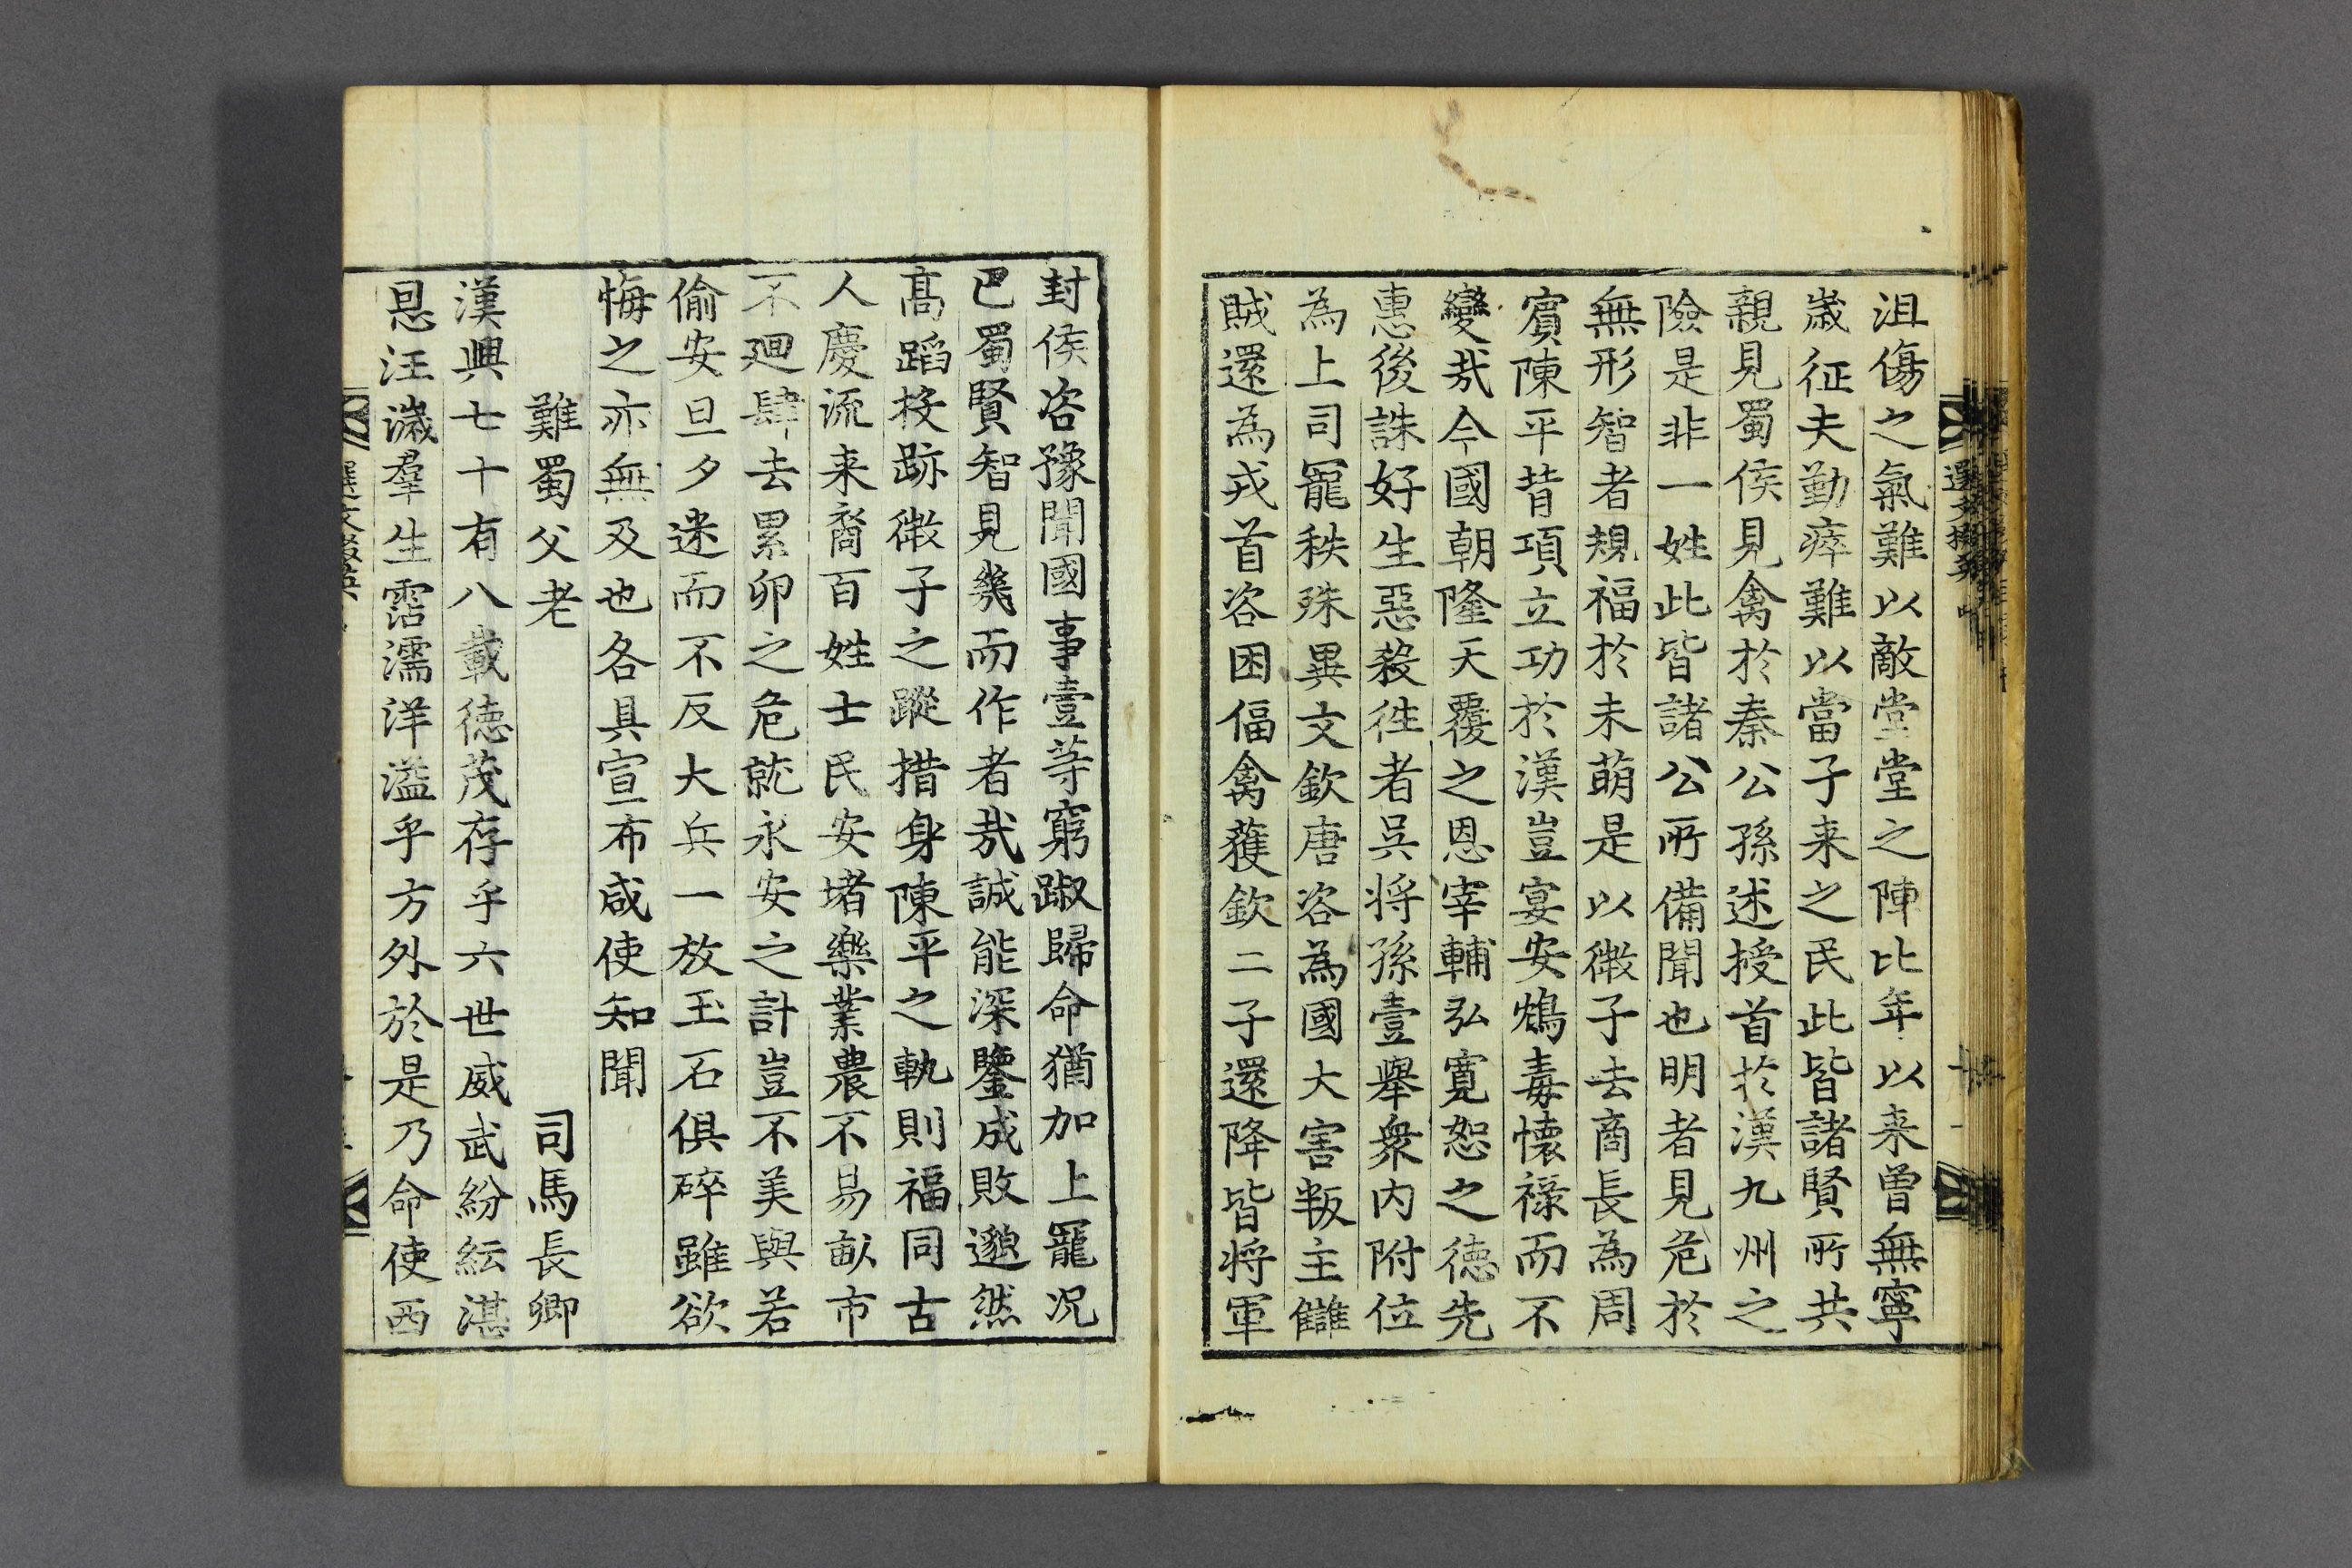 沮傷之氣難以敵堂堂之陣比年以来曾無寧
歳征夫勤瘁難以當子来之民此皆諸賢所共
親見蜀侯見禽於秦公孫述授首於漢九州之
險是非一姓此皆諸公所備聞也明者見危於
無形智者規福於未萌是以微子去商長為周
賔陳平背項立功於漢豈宴安鴆毒懐禄而不
變㢤今國朝隆天覆之恩宰輔弘寛恕之德先
惠後誅好生惡殺徃者吳将孫壹舉衆內附位
為上司寵秩殊異文欽唐咨為國大害叛主讎
賊還為戎首咨困偪禽獲欽二子還降皆将軍
封侯咨豫聞國事壹等窮踧歸命猶加上寵况
巴蜀賢智見幾而作者㢤誠能深鑒成敗邈然
髙蹈投跡微子之蹤措身陳平之軌則福同古
人慶流来裔百姓士民安堵樂業農不易畝市
不廻肆去累卵之危就永安之計豈不美與若
偷安旦夕迷而不反大兵一放玉石俱碎雖欲
悔之亦無及也各具宣布咸使知聞
難蜀父老 司馬長卿
漢興七十有八載德茂存乎六世威武紛紜湛
恩汪濊羣生霑濡洋溢乎方外於是乃命使西